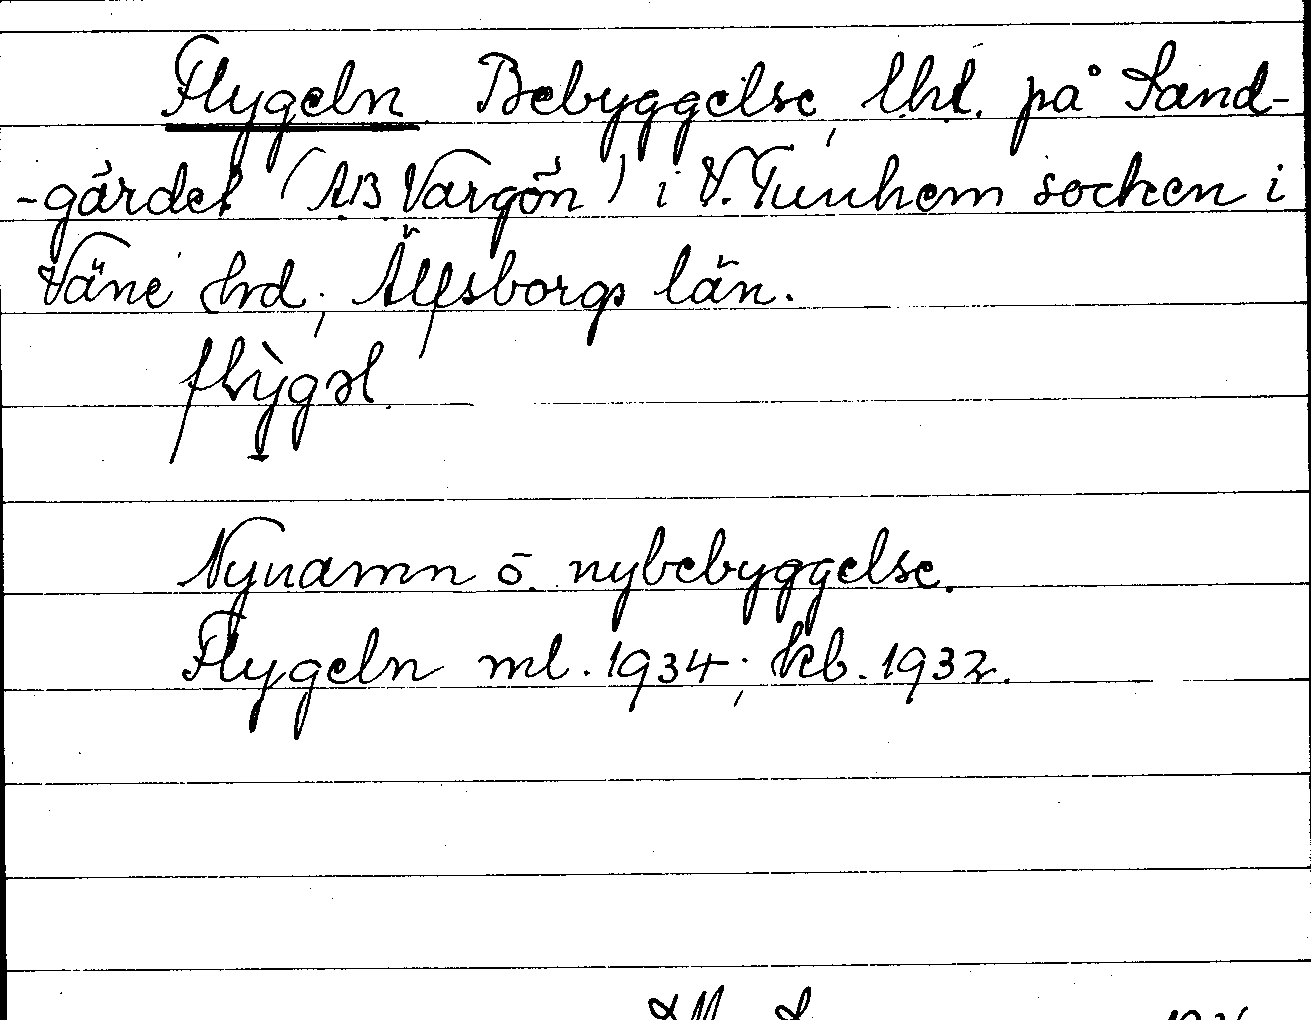 Flygeln Bebyggelse, lht. på Sand-
-gärdet (AB Vargön) i V. Tunhem socken i
Väne hd; Älfsborgs län.
flỳgəl.
Nynamn o. nybebyggelse.
Flygeln ml. 1934; kb. 1932.